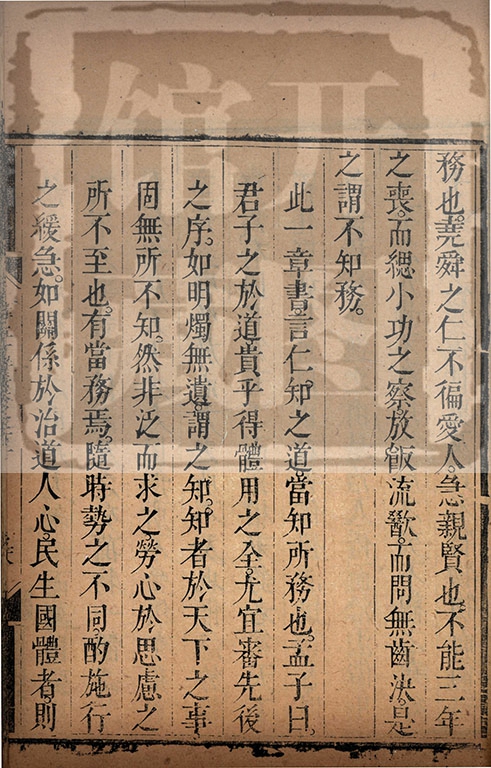 務也堯舜之仁不徧愛人急親賢也不能三年
之喪而緦小功之察放飯流歠而問無齒決是
之謂不知務
此一章書言仁知之道當知所務也孟子曰
君子之於道貴乎得體用之全尤宜審先後
之序如明燭無遺謂之知知者於天下之事
固無所不知然非泛而求之勞心於思慮之
所不至也有當務焉隨時勢之不同酌施行
之緩急如關係於治道人心民生國體者則